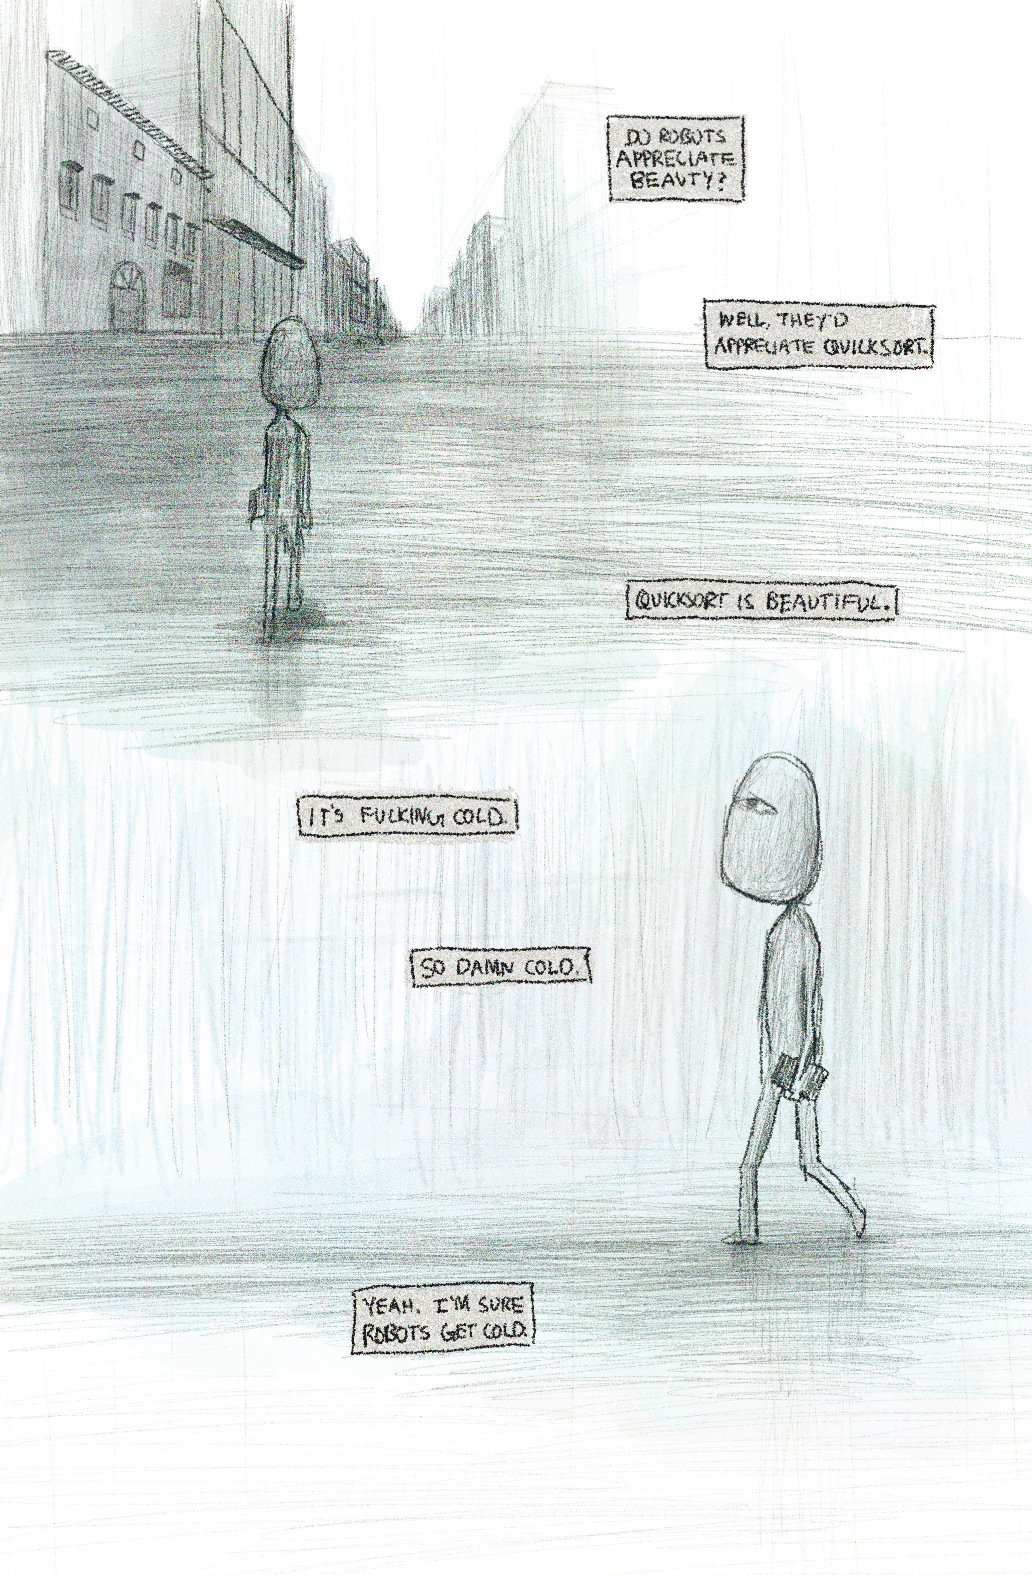 DO ROBOTS
APPRECIATE
BEAUTY?
WELL, THEY'D
APPRECIATE QUICKSORT.
QUICKSORT IS BEAUTIFUL.
IT'S FUCKING COLD.
SO DAMN COLD.
YEAH. I'M SURE
ROBOTS GET COLD.